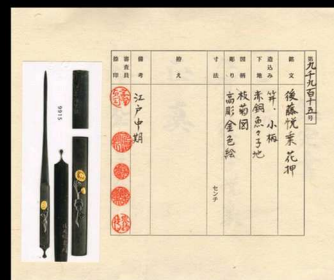 第九千九百十五号
銘文 後藤悦乗 花押
造込み 笄、小柄
下地 赤銅魚々子地
図柄 枝菊図
彫り 高彫金色絵
寸法 センチ
拵え
備考 江戸中期
審査員
9915